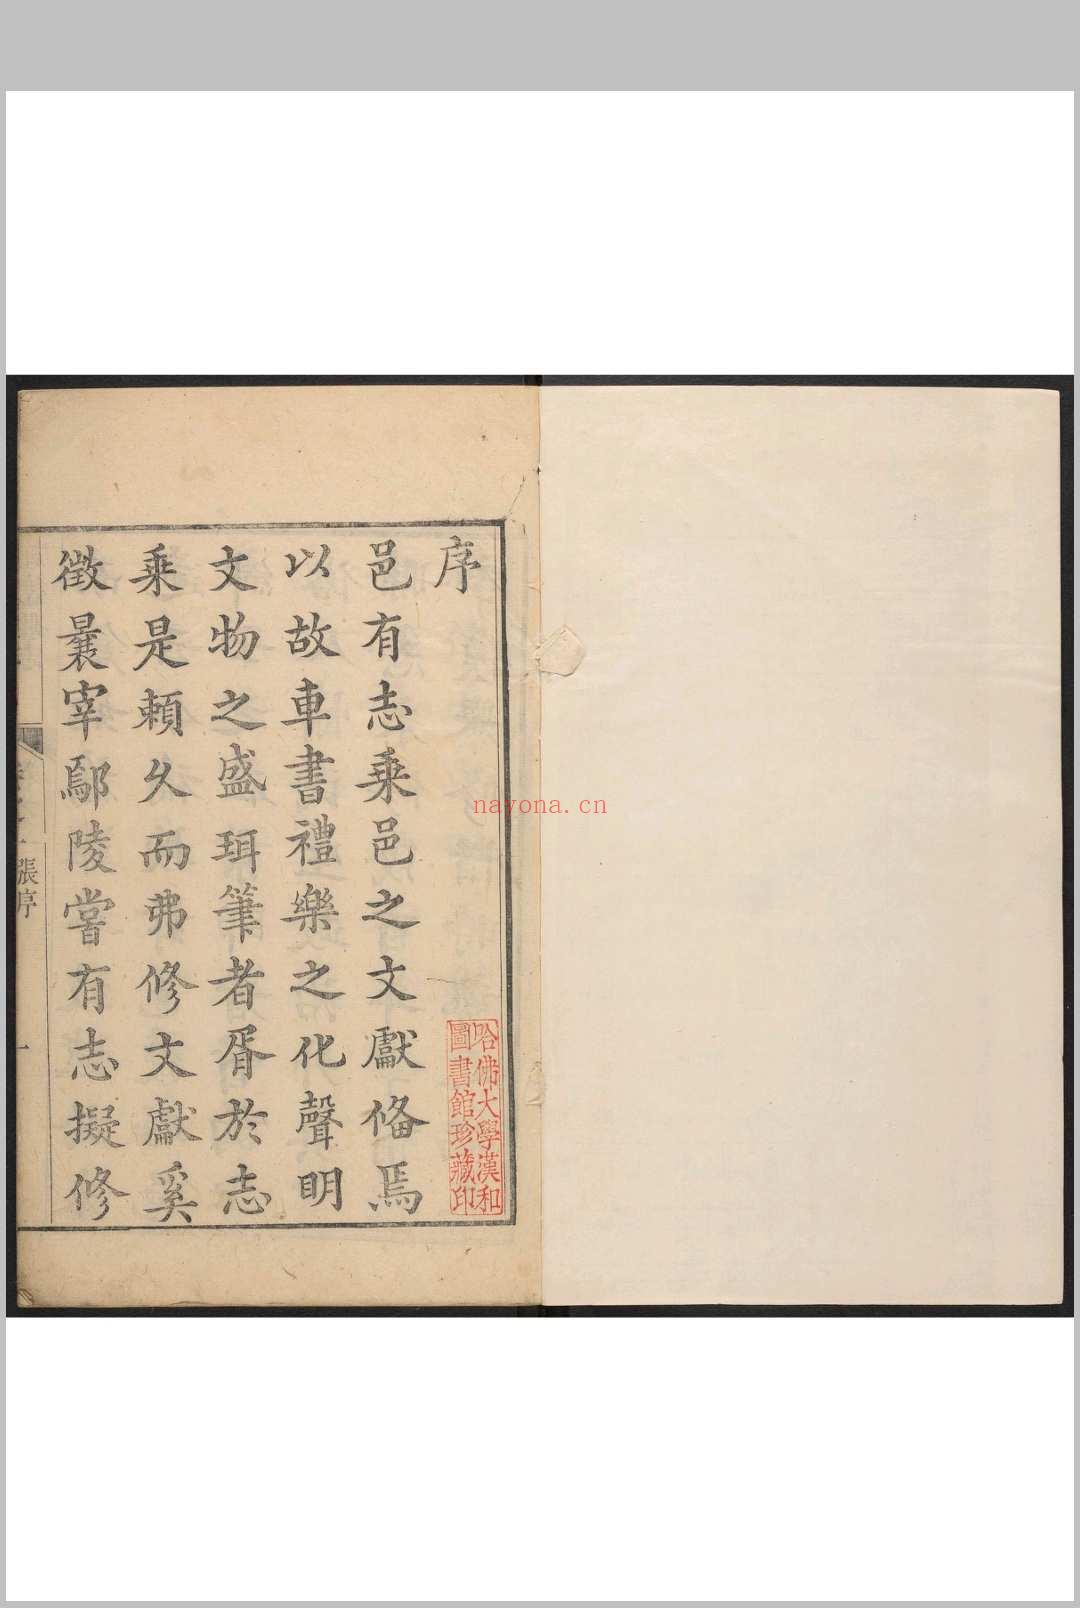 序
邑有志乗邑之文獻俻焉
以故車書禮樂之化聲明
文物之盛珥筆者胥於志
乗是頼久而弗修文獻奚
徴曩宰鄢陵嘗有志擬修
張序
一
哈佛大學漢和
圖書館珍藏印
nayona.cn